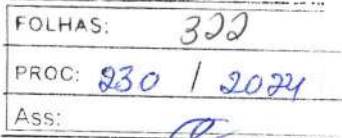 FOLHAS: 322
PROC: 230 / 2024
Ass: